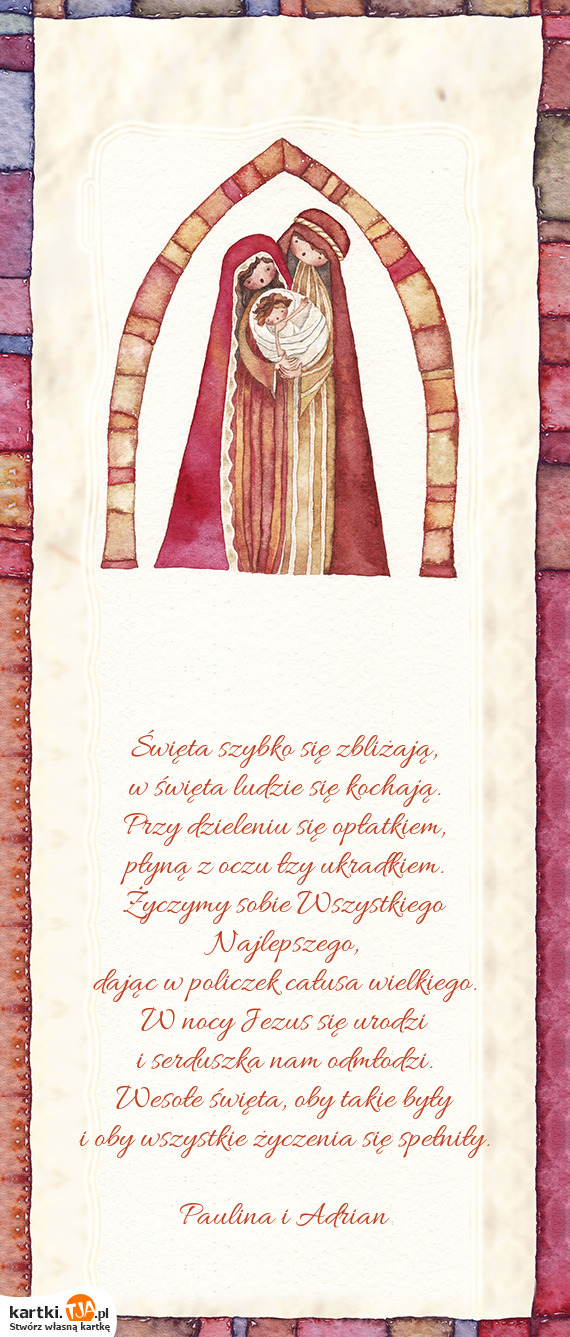 Święta szybko się zbliżają,
w święta ludzie się kochają.
Przy dzieleniu się opłatkiem,
płyną z oczu łzy ukradkiem.
Życzymy sobie Wszystkiego
Najlepszego,
dając w policzek całusa wielkiego.
W nocy Jezus się urodzi
i serduszka nam odmłodzi.
Wesołe święta, oby takie były
i oby wszystkie życzenia się spełniły.
Paulina i Adrian
kartki.TJA.pl
Stwórz własną kartkę